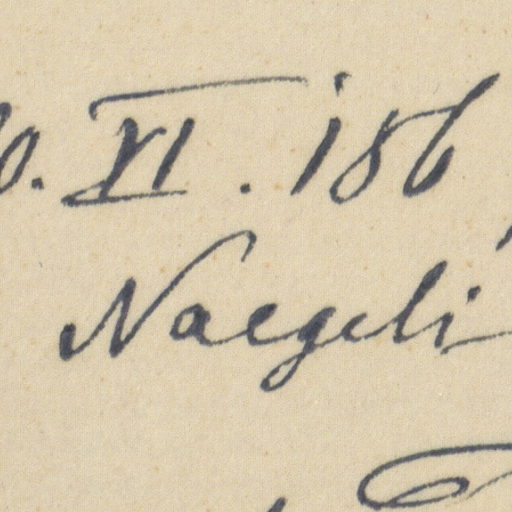 0. XI. 186
Naegeli